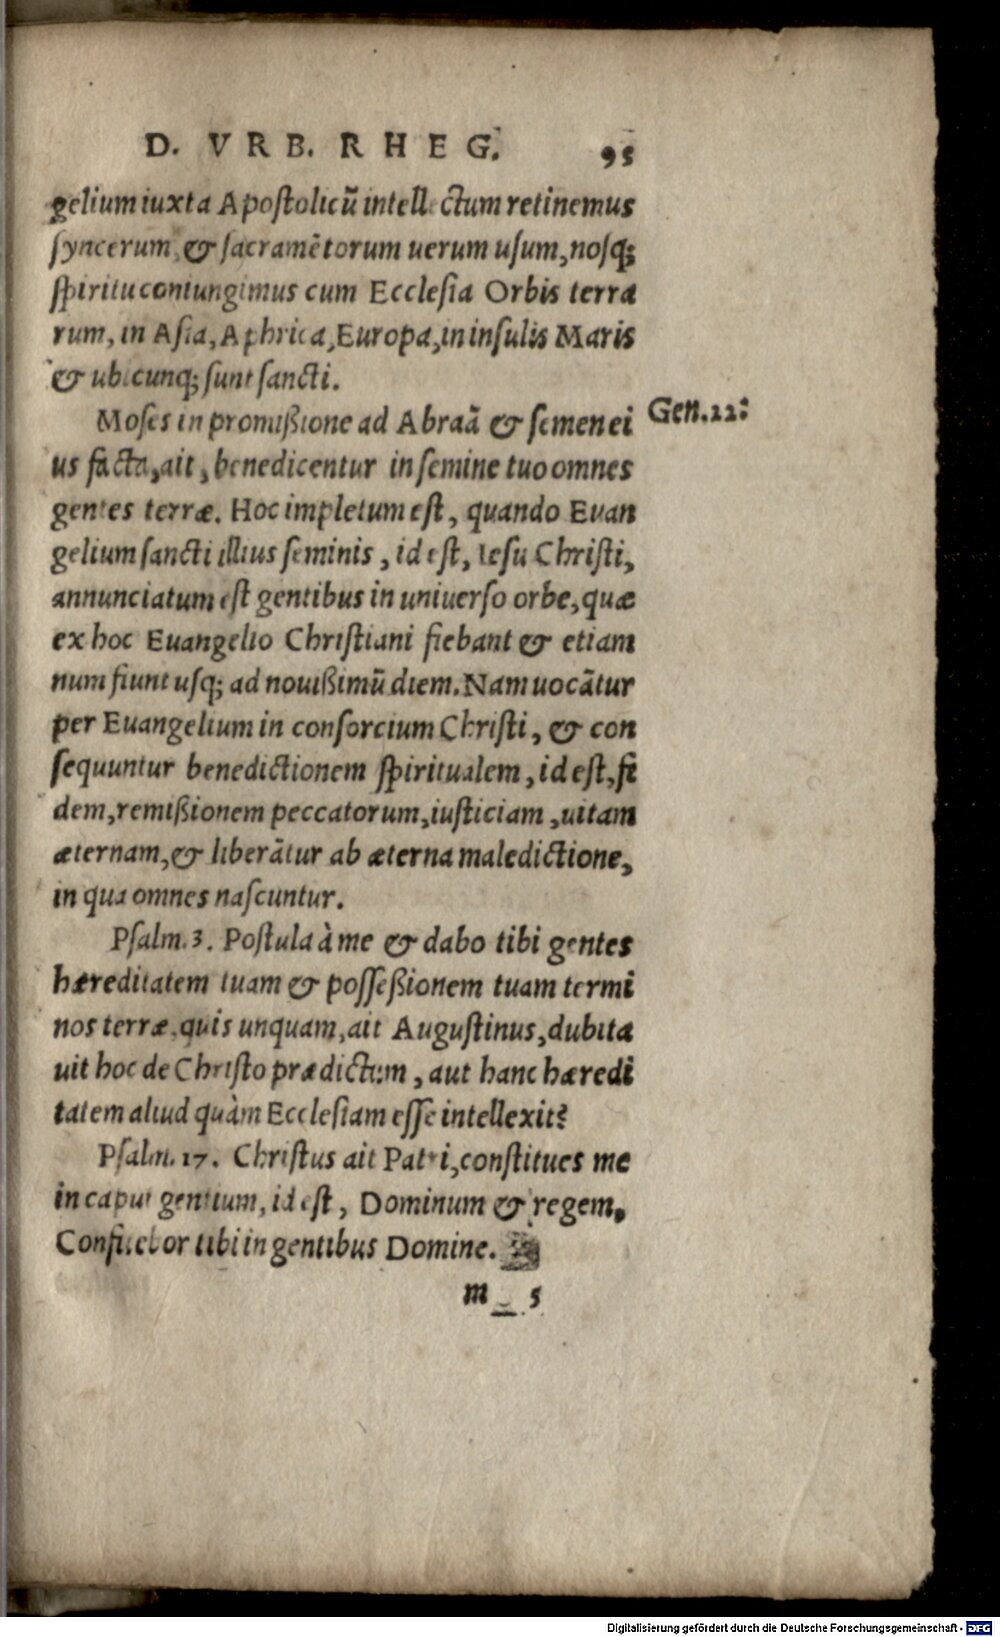 D. VRB. RHEG. 95
gelium iuxta Apostolicũ intellectum retinemus
syncerum, & sacramētorum uerum usum, nosq;
spiritu coniungimus cum Ecclesia Orbis terra
rum, in Asia, Aphrica, Europa, in insulis Maris
& ubicunq; sunt sancti.
Moses in promißione ad Abraã & semen ei Gen.22:
us facta, ait, benedicentur in semine tuo omnes
gentes terræ. Hoc impletum est, quando Euan
gelium sancti illius seminis, id est, Iesu Christi,
annunciatum est gentibus in uniuerso orbe, quæ
ex hoc Euangelio Christiani fiebant & etiam
num fiunt usq; ad nouißimũ diem. Nam uocãtur
per Euangelium in consorcium Christi, & con
sequuntur benedictionem spiritualem, id est, fi
dem, remißionem peccatorum, iusticiam, uitam
æternam, & liberãtur ab æterna maledictione,
in qua omnes nascuntur.
Psalm. 3. Postula à me & dabo tibi gentes
hæreditatem tuam & posseßionem tuam termi
nos terræ, quis unquam, ait Augustinus, dubita
uit hoc de Christo prædictum, aut hanc hæredi
tatem aliud quàm Ecclesiam esse intellexit?
Psalm. 17. Christus ait Patri, constitues me
in caput gentium, id est, Dominum & regem,
Confitebor tibi in gentibus Domine.
m 5
Digitalisierung gefördert durch die Deutsche Forschungsgemeinschaft - DFG